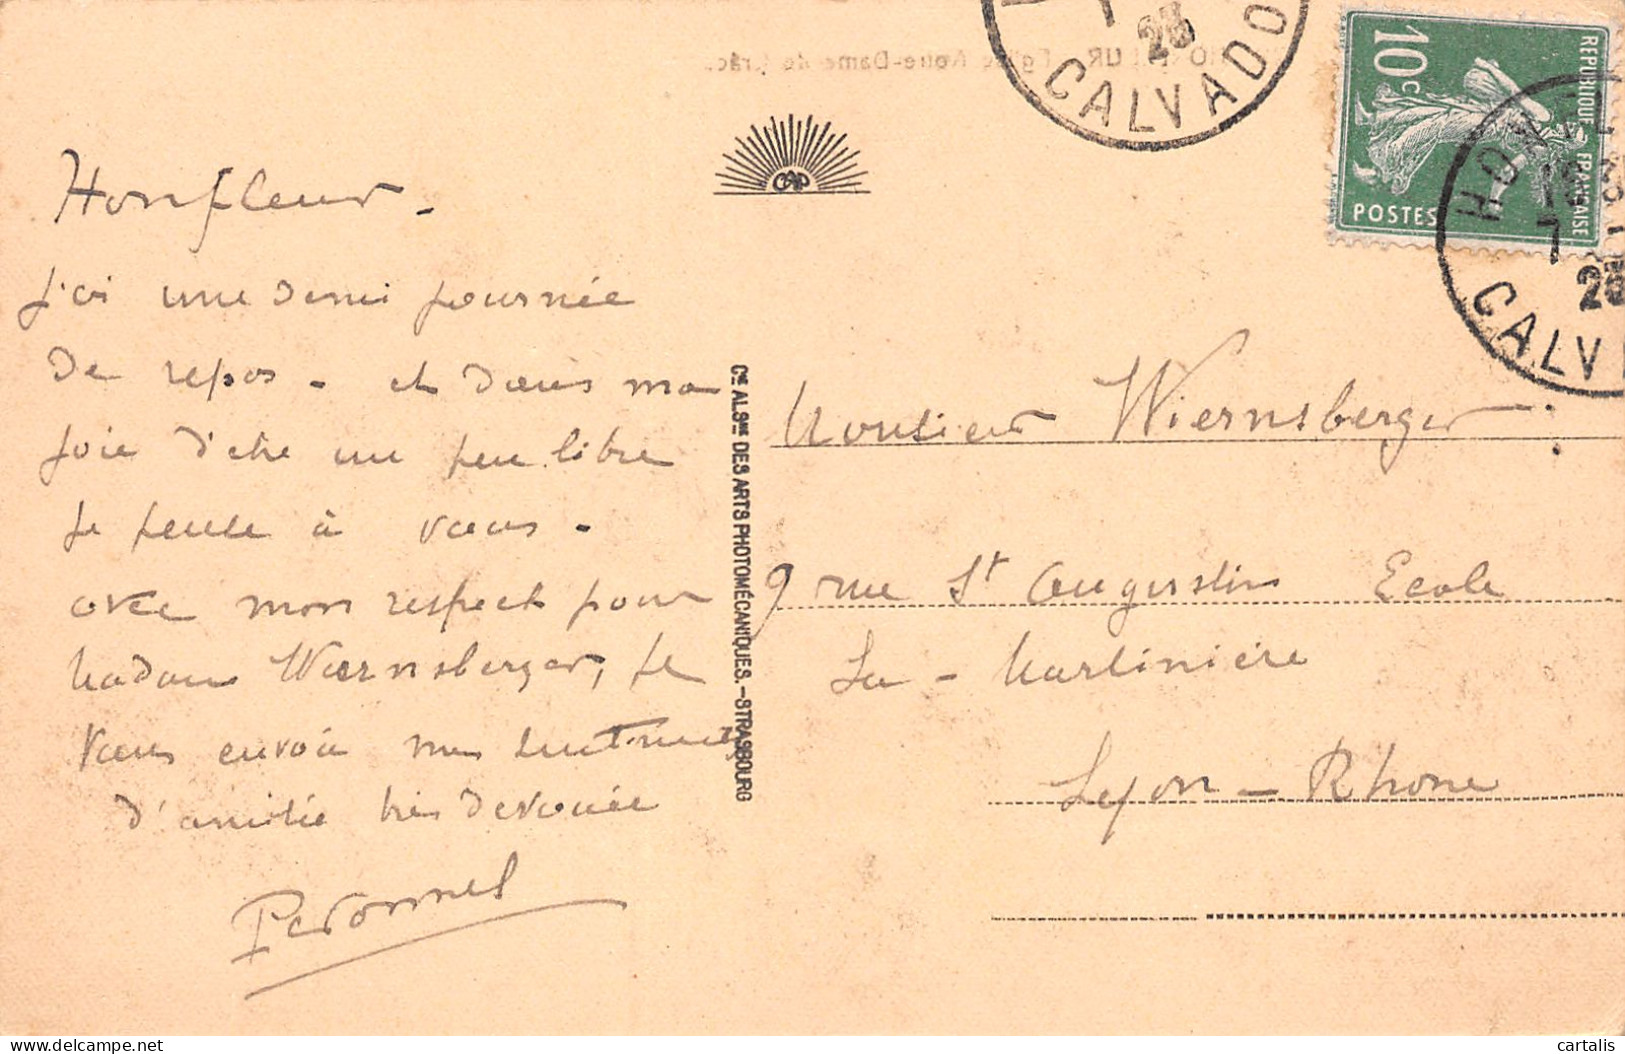 Honfleur -
j'ai une demi journée
de repos - et dans ma
joie d'être un peu libre
je pense à vous -
avec mon respect pour
Madame Wiernsberger, je
vous envoie mes sentiments
d'amitié très dévouée
Peronnet
CAP
Cie ALSne DES ARTS PHOTOMÉCANIQUES.-STRASBOURG
CALVADO
23
10c
REPUBLIQUE FRANÇAISE
POSTES
HONFL
7
23
CALV
Monsieur Wiernsberger
9 rue St Augustin Ecole
La - Martinière
Lyon - Rhone
cartalis